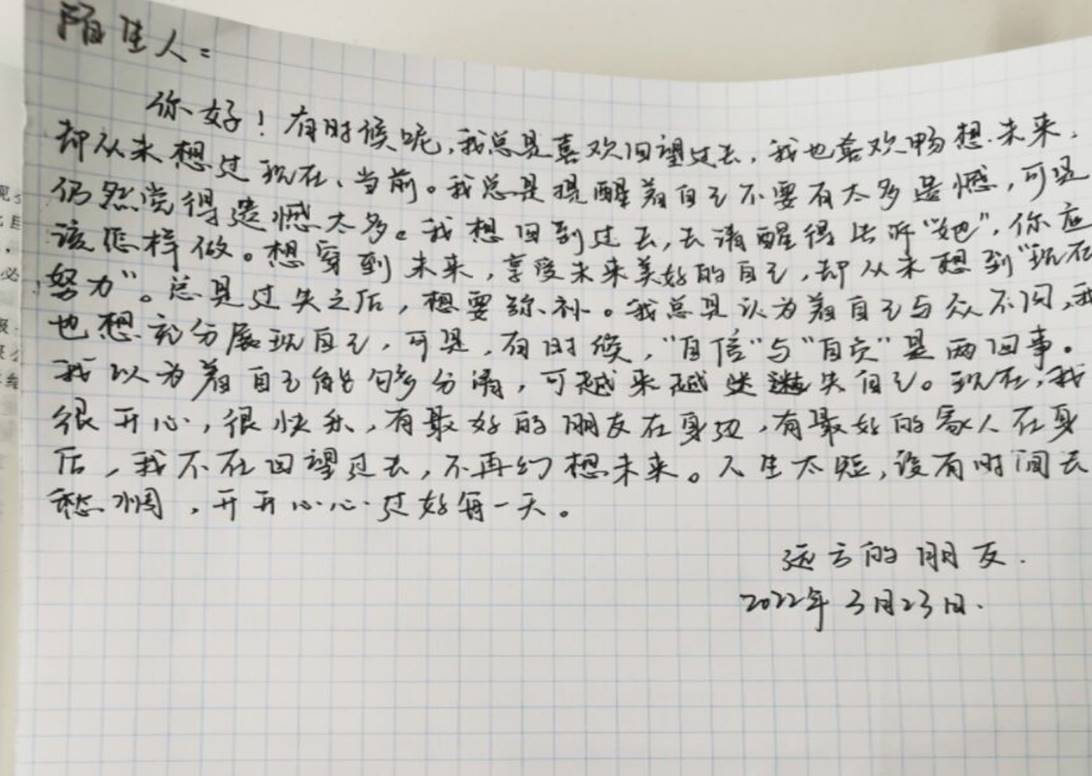 陌生人：
你好！有时候呢，我总是喜欢回望过去，我也喜欢畅想未来，
却从未想过现在、当前。我总是提醒着自己不要有太多遗憾，可是
仍然觉得遗憾太多。我想回到过去，去清醒得告诉"她"，你应
该怎样做。想穿到未来，享受未来美好的自己，却从未想到"现在
努力"。总是过失之后，想要弥补。我总是认为着自己与众不同，我
也想充分展现自己，可是，有时候，"自信"与"自负"是两回事。
我以为着自己能够分清，可越来越迷失自己。现在，我
很开心，很快乐，有最好的朋友在身边，有最好的家人在身
后，我不在回望过去，不再幻想未来。人生太短，没有时间去
愁惆，开开心心过好每一天。
远方的朋友.
2022年3月23日.